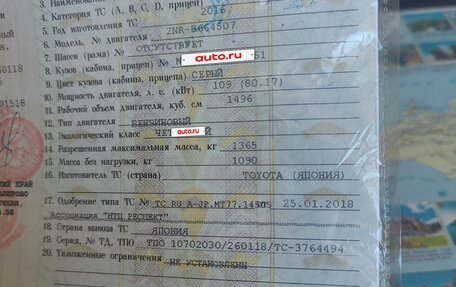 3. Наименование
4. Категория ТС (А, В, С, D, прицеп)
5. Год изготовления ТС 2016
6. Модель, № двигателя 2NR-8664507
7. Шасси (рама) № ОТСУТСТВУЕТ
8. Кузов (кабина, прицеп) № N auto.ru 51
9. Цвет кузова (кабины, прицепа) СЕРЫЙ
10. Мощность двигателя, л. с. (кВт) 109 (80.17)
11. Рабочий объем двигателя, куб. см 1496
12. Тип двигателя БЕНЗИНОВЫЙ
13. Экологический класс ЧЕТ auto.ru Й
14. Разрешенная максимальная масса, кг 1365
15. Масса без нагрузки, кг 1090
16. Изготовитель ТС (страна) TOYOTA (ЯПОНИЯ)
17. Одобрение типа ТС № ТС RU A-JP.МТ77.14505 25.01.2018
Ассоциация "НТЦ РЕСПЕКТ"
18. Страна вывоза ТС ЯПОНИЯ
19. Серия, № ТД, ТПО ТПО 10702030/260118/ТС-3764494
20. Таможенные ограничения НЕ УСТАНОВЛЕНЫ
60118
01518
КИЙ КРАЙ